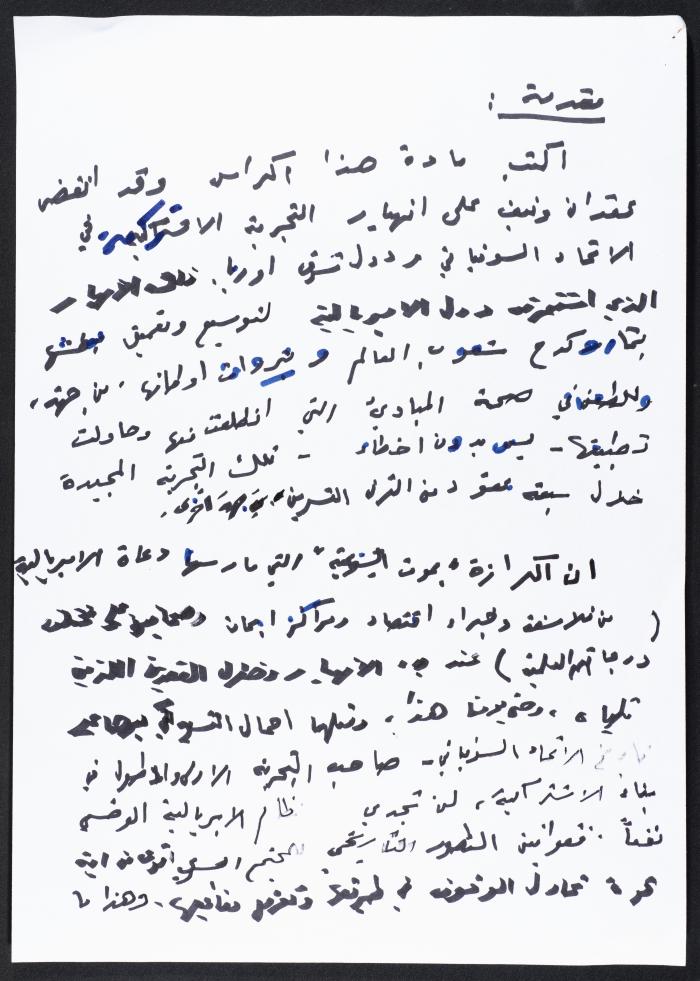 مقدمة :
اكتب مادة هذا الكراس وقد انقضى
عقدان ونيف على انهيار التجربة الاشتراكية في
الاتحاد السوفياتي ودول شرق اوربا. ذلك الانهيار
الذي استثمرته دول الامبريالية لتوسيع وتعميق بطشها
بثمار وكدح شعوب العالم و ثروات اوطانها، من جهة،
وللطعن في صحة المبادئ التي انطلقت منها وحاولت
تطبيقها - ليس بدون اخطاء - تلك التجربة المجيدة
خلال سبعة عقود من القرن العشرين، من جهة اخرى.
ان الكرازة "بموت الشيوعية" التي مارسها دعاة الامبريالية
( من فلاسفة وخبراء اقتصاد ومراكز ابحاث وصحافيين على مختلف
درجاتهم العلمية ) عند بدء الانهيار وخلال الفترة اللازمة
تليها، وحتى يومنا هذا، ومثلها اهمال
تاريخ الاتحاد السوفياتي - صاحب التجربة الاولى والاطول في
بناء الاشتراكية، لن تجدي نظام الامبريالية
نفعاً. فقوانين التطور التاريخي للمجتمع البشري اقوى من اية
قوة تحاول الوقوف في طريقها وتعرقل مفاعيلها. وهذا ما